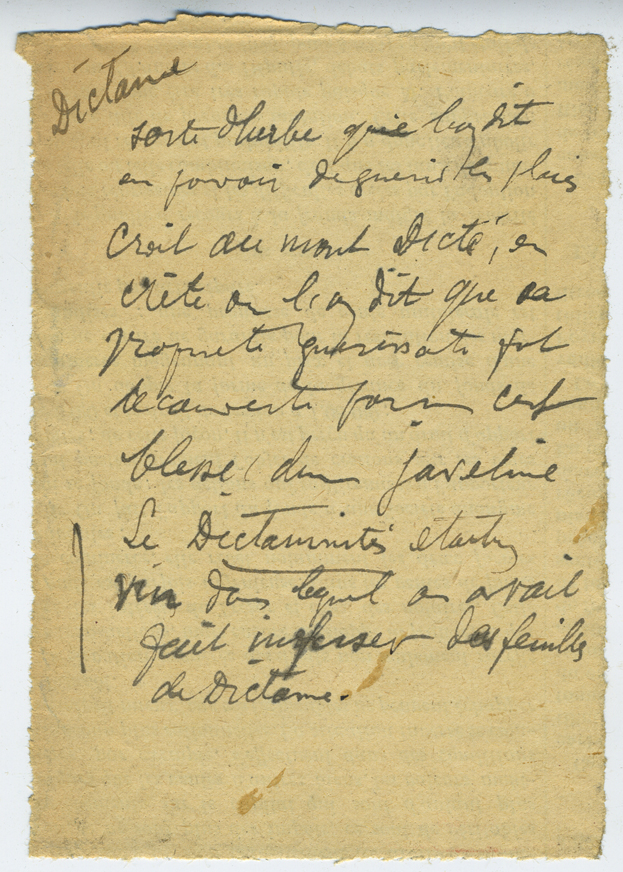 Dictame
sorte d'herbe que l'on dit
en pouvoir de guerir les plaies
Croit au mont Dicté, en
Crète ou l'on dit que sa
propriete guerissante fut
decouverte par un cerf
blessé d'un javeline
Le Dictaminités etait un
vin dans lequel on avait
fait infuser des feuilles
de Dictame.